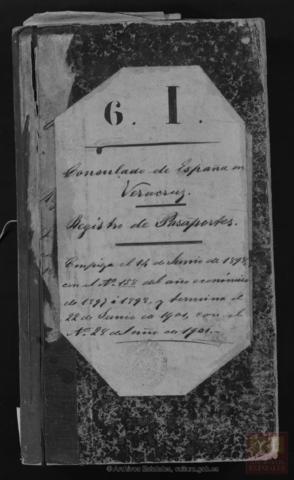 6. I.
Consulado de España en
Veracruz.
Registro de Pasaportes.
Empieza el 14 de Junio de 1898,
con el Nº 158 del año económico
de 1897 á 1898, y termina el
22 de Junio de 1901, con el
Nº 28 de Junio de 1901.
© Archivos Estatales, cultura.gob.es